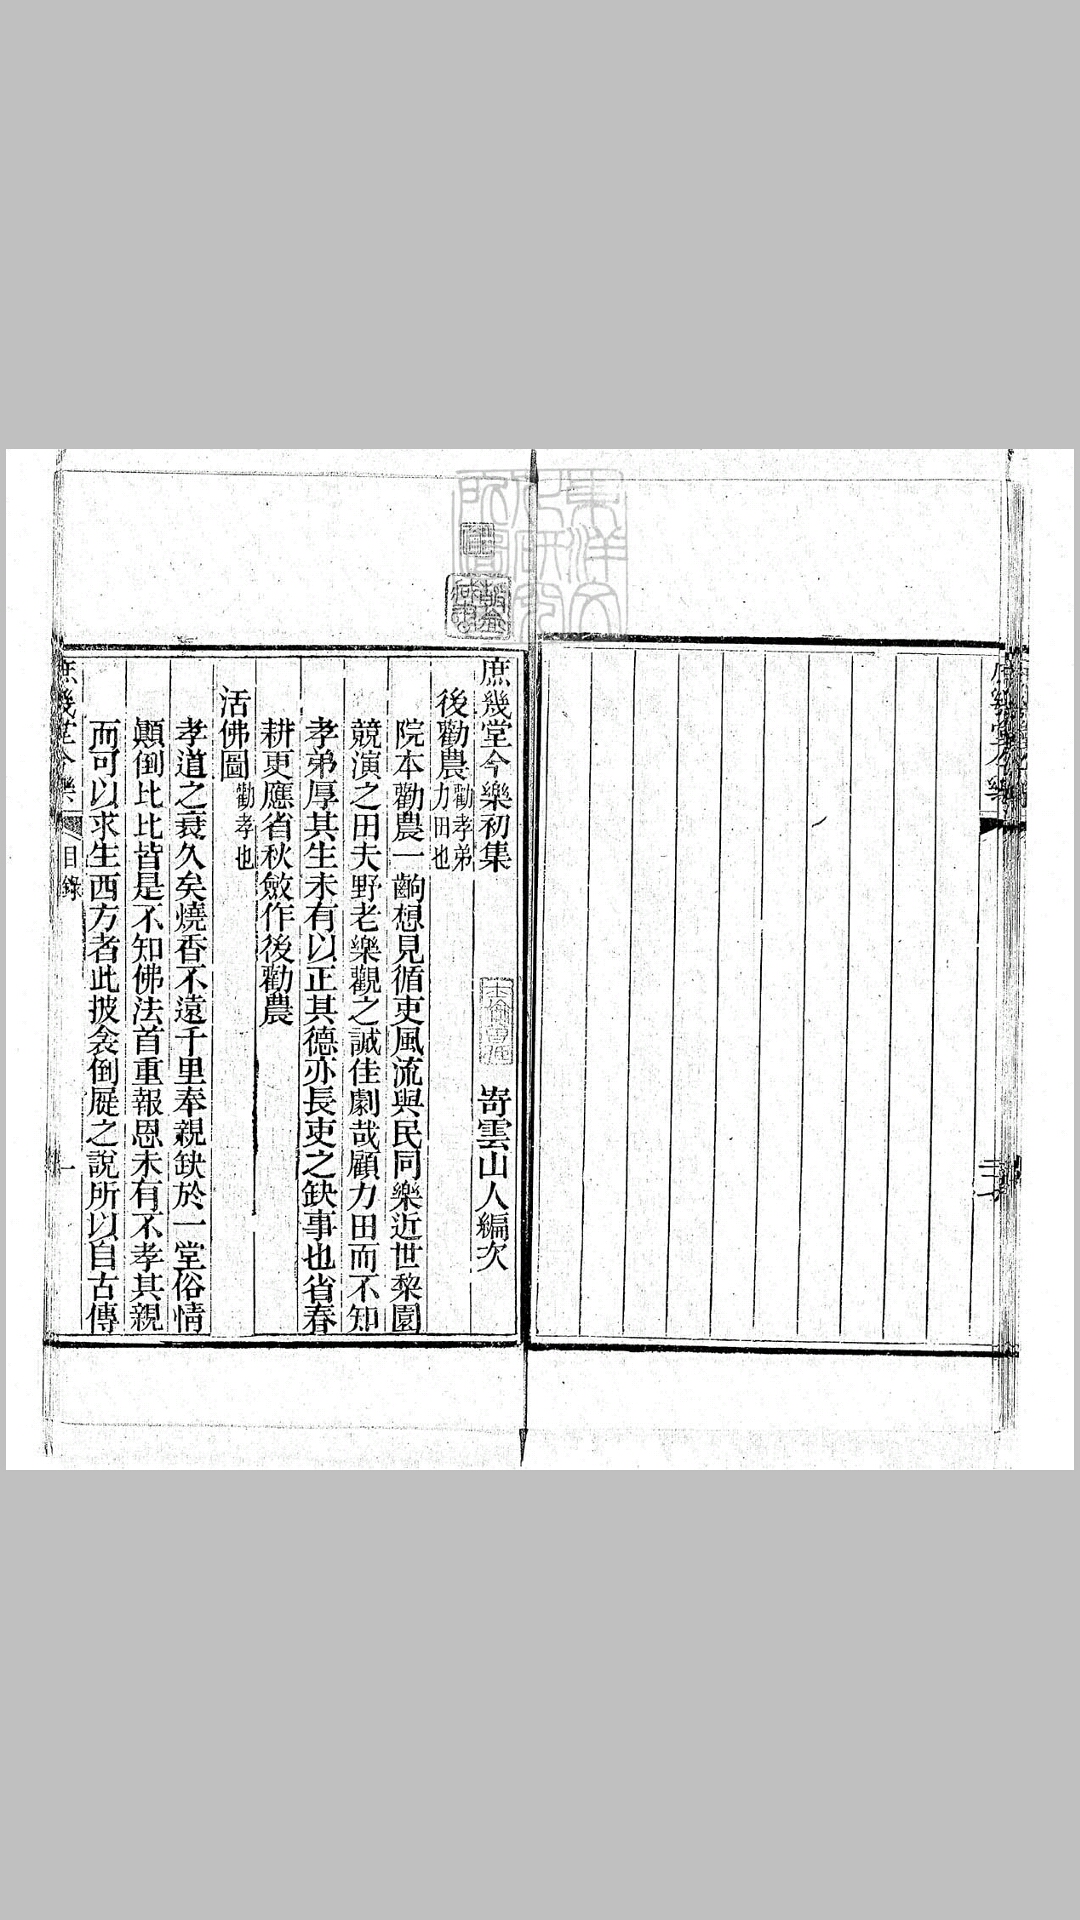 庶幾堂今樂初集　寄雲山人編次
後勸農　勸孝弟力田也
院本勸農一齣想見循吏風流與民同樂近世棃園
競演之田夫野老樂觀之誠佳劇哉顧力田而不知
孝弟厚其生未有以正其德亦長吏之缺事也省春
耕更應省秋斂作後勸農
活佛圖　勸孝也
孝道之衰久矣燒香不遠千里奉親缺於一堂俗情
顚倒比比皆是不知佛法首重報恩未有不孝其親
而可以求生西方者此披衾倒屣之說所以自古傳
庶幾堂今樂　目錄　一